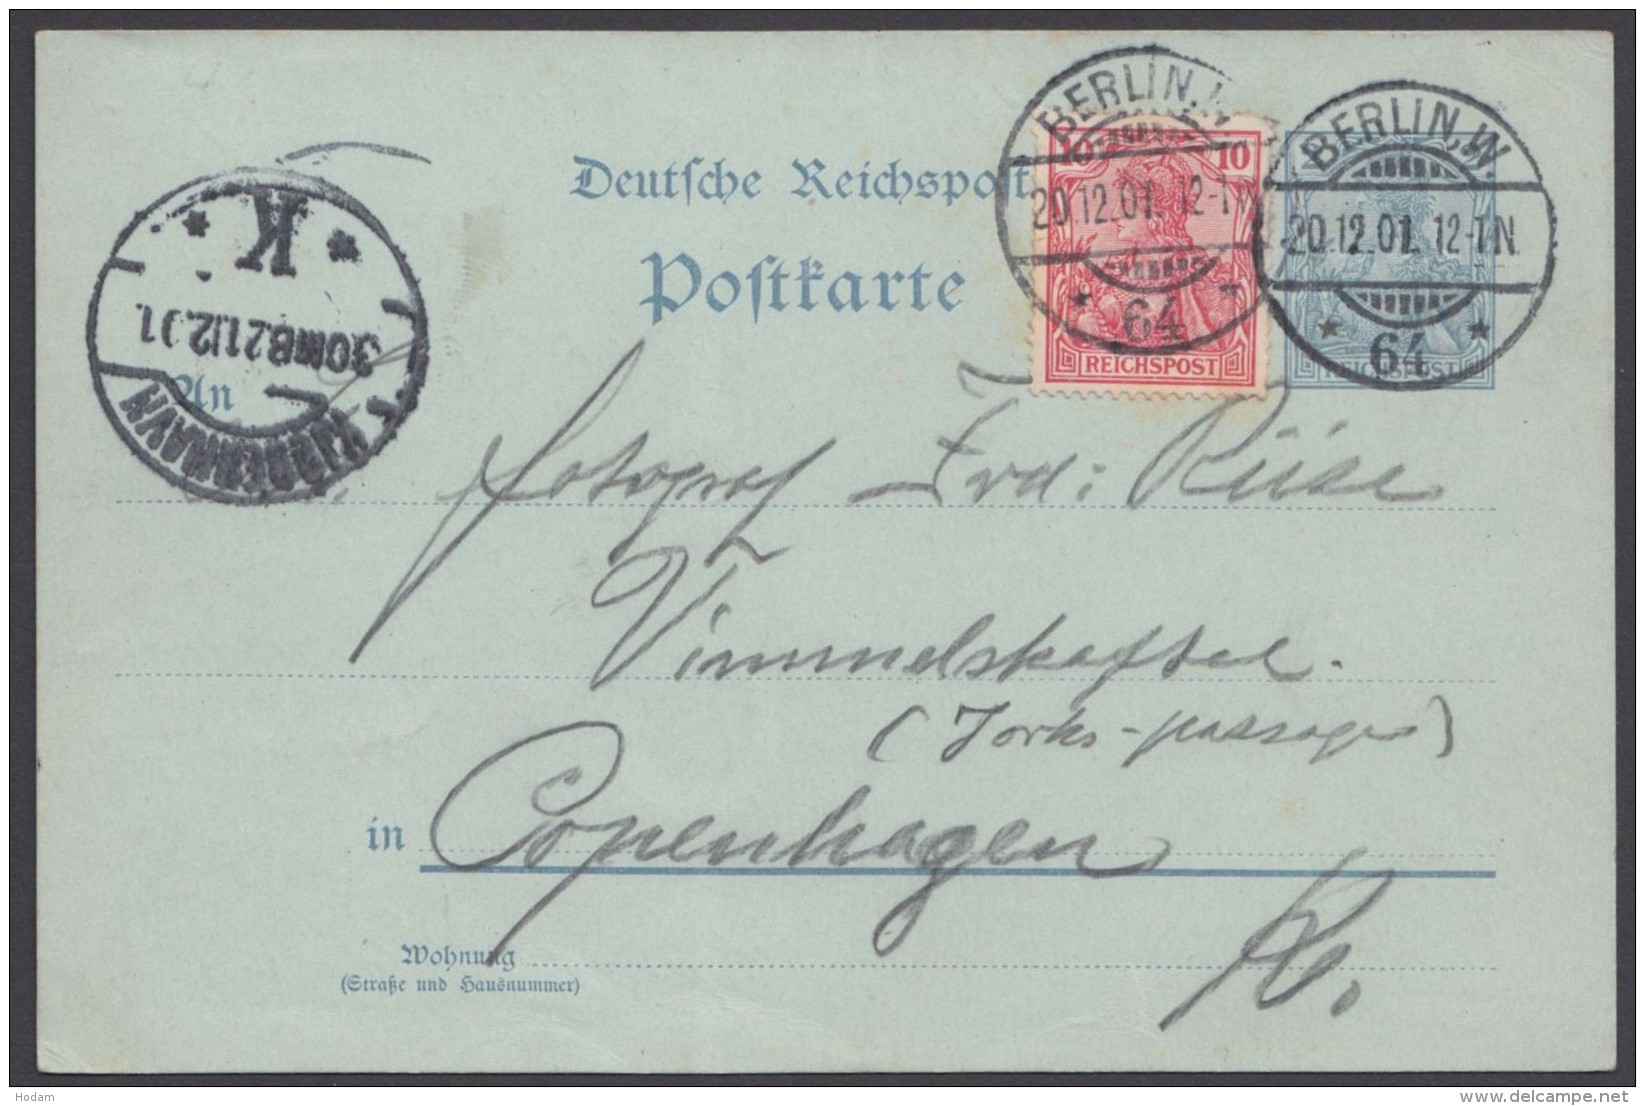 Deutsche Reichspost
Postkarte
BERLIN, W.
20.12.01. 12-1N.
64
10 10
REICHSPOST
BERLIN, W.
20.12.01. 12-1N.
64
REICHSPOST
K
30MB 21.12.01.
KJØBENHAVN
An
fotograf Frd: Riise
Vimmelskaftet.
(Jorks-passage)
in Copenhagen
K.
Wohnung
(Straße und Hausnummer)
Hodam
delcampe.net